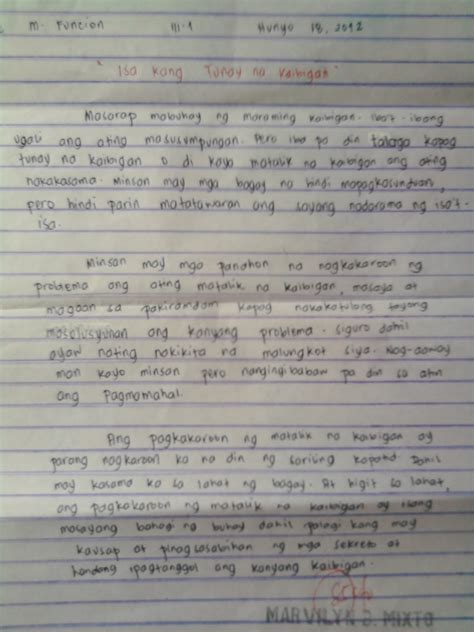 M. Funcion III-1 Hunyo 18, 2012
"Isa kang Tunay na Kaibigan"
Masarap mabuhay ng maraming kaibigan. Iba't-ibang
ugali ang ating masusumpungan. Pero iba pa din talaga kapag
tunay na kaibigan o di kaya matalik na kaibigan ang ating
nakakasama. Minsan may mga bagay na hindi mapagkasunduan,
pero hindi parin matatawaran ang sayang nadarama ng isa't-
isa.
Minsan may mga panahon na nagkakaroon ng
problema ang ating matalik na kaibigan, masaya at
magaan sa pakiramdam kapag nakakatulong tayong
masolusyunan ang kanyang problema. siguro dahil
ayaw nating nakikita na malungkot siya. Nag-aaway
man kayo minsan pero nangingibabaw pa din sa atin
ang Pagmamahal.
Ang pagkakaroon ng matalik na kaibigan ay
parang nagkaroon ka na din ng sariling kapatid. Dahil
may kasama ka sa lahat ng bagay. At higit sa lahat,
ang pagkakaroon ng matalik na kaibigan ay isang
masayang bahagi na buhay dahil palagi kang may
kausap at pinagsasabihan ng mga sekreto at
handang ipagtanggol ang kanyang kaibigan.
MARVILYN B. MIXTO